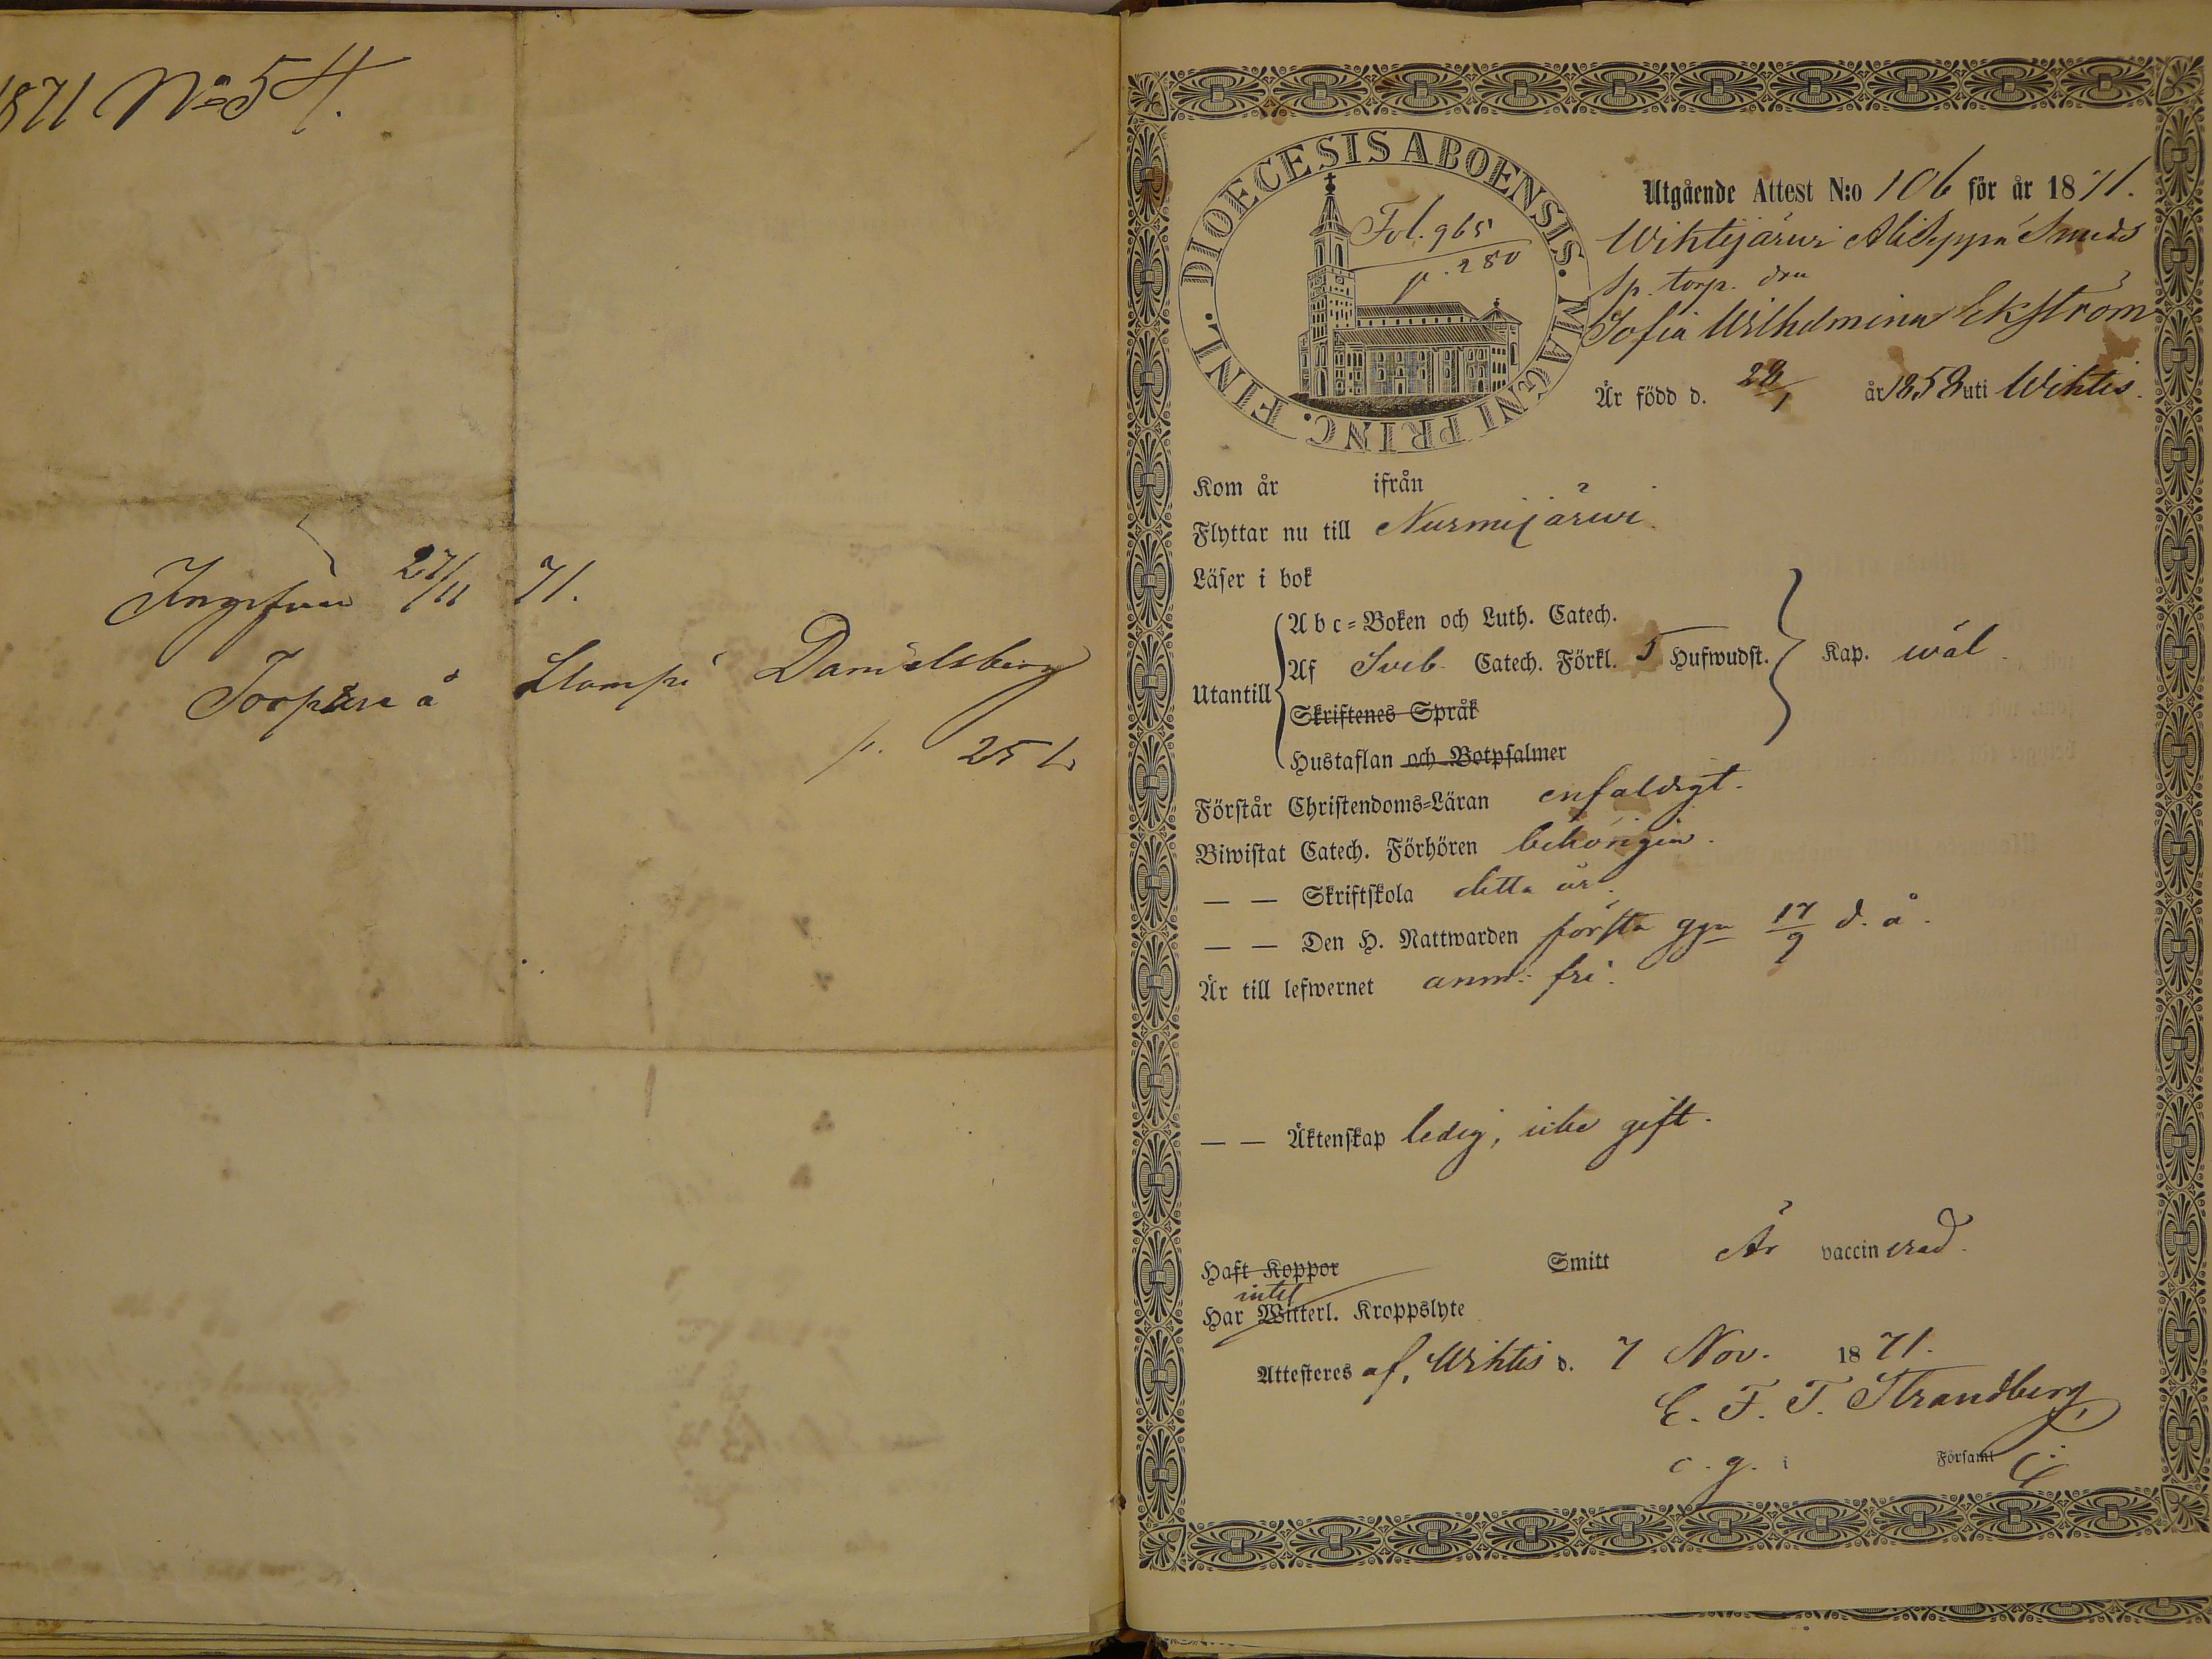 1871 No 54.
27/11 71.
Torpare å Stampi Danielsberg
p. 251
DIOECESIS ABOENSIS. MAGNI PRINC. FINL.
Fol. 965
p. 280
Utgående Attest N:o 106 för år 1871.
Wihtijärwi Ali Seppä Smeds
Sp. torp. dra
Sofia Wilhelmina Ekström
Är född d. 28/1 år 1858 uti Wihtis.
Kom år ifrån
Flyttar nu till Nurmijärwi.
Läser i bok
Abc-Boken och Luth. Catech.
Utantill Af Sveb. Catech. Förkl. 5 Hufwudst. Kap. wäl.
Skriftenes Språk
Hustaflan och Botpsalmer
Förstår Christendoms-Läran enfaldigt.
Biwistat Catech. Förhören behörigen.
— — Skriftskola detta år.
— — Den H. Nattwarden första ggn 17/9 d. å.
Är till lefwernet anm: fri.
— — Äktenskap ledig, icke gift.
Haft Koppor Smitt Är vaccinerad.
intet
Har Witterl. Kroppslyte
Attesteres af, Wihtis d. 7 Nov. 1871.
E. F. T. Strandberg
c. g. i Församl